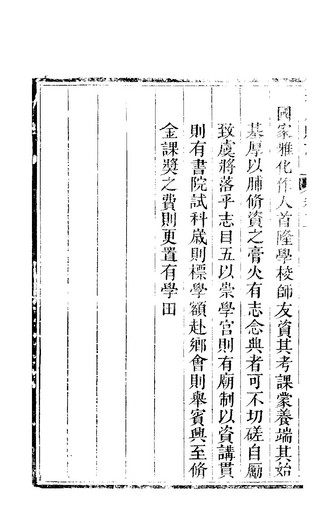 國家雅化作人首隆學校師友資其考課蒙養端其始
基厚以脯脩資之膏火有志念典者可不切磋自勵
致虞將落乎志目五以崇學官則有廟制以資講貫
則有書院試科歲則標學額赴鄉會則舉賓興至脩
金課獎之費則更置有學田